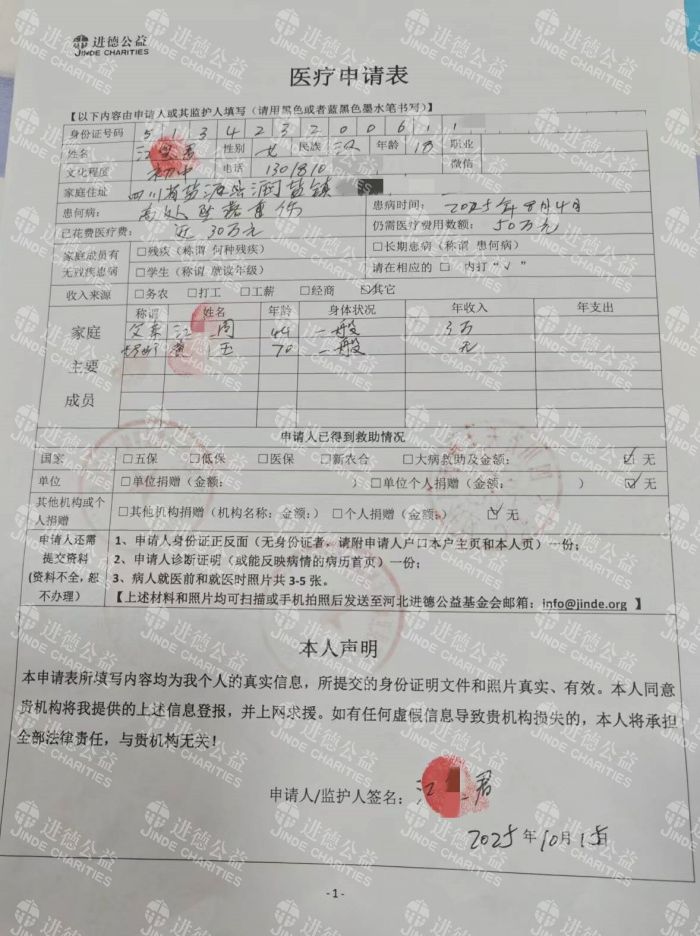 进德公益
JINDE CHARITIES
医疗申请表
【以下内容由申请人或其监护人填写（请用黑色或者蓝黑色墨水笔书写）】
身份证号码 5 1 3 4 2 3 2 0 0 6 1 1
姓名 江 君 性别 女 民族 汉 年龄 18 职业
文化程度 初中 电话 1301810 微信
家庭住址 四川省盐源县润盐镇
患何病： 高处坠落重伤 患病时间： 2025年8月4日
已花费医疗费： 近30万元 仍需医疗费用数额： 50万元
家庭成员有无残疾患病 □残疾（称谓 何种残疾） □长期患病（称谓 患何病）
□学生（称谓 就读年级） 请在相应的 □ 内打“√”
收入来源 □务农 □打工 □工薪 □经商 ☑其它
家庭主要成员 称谓 姓名 年龄 身体状况 年收入 年支出
父亲 江 周 44 一般 3万
黄 玉 70 一般 无
申请人已得到救助情况
国家 □五保 □低保 □医保 □新农合 □大病救助及金额： ☑无
单位 □单位捐赠（金额： ）□单位个人捐赠（金额： ） ☑无
其他机构或个人捐赠 □其他机构捐赠（机构名称：金额：）□个人捐赠（金额：） ☑无
申请人还需提交资料（资料不全，恕不办理）
1、申请人身份证正反面（无身份证者，请附申请人户口本户主页和本人页）一份；
2、申请人诊断证明（或能反映病情的病历首页）一份；
3、病人就医前和就医时照片共 3-5 张。
【上述材料和照片均可扫描或手机拍照后发送至河北进德公益基金会邮箱：info@jinde.org 】
本人声明
本申请表所填写内容均为我个人的真实信息，所提交的身份证明文件和照片真实、有效。本人同意
贵机构将我提供的上述信息登报，并上网求援。如有任何虚假信息导致贵机构损失的，本人将承担
全部法律责任，与贵机构无关！
申请人/监护人签名： 江 君
2025年10月15日
- 1 -